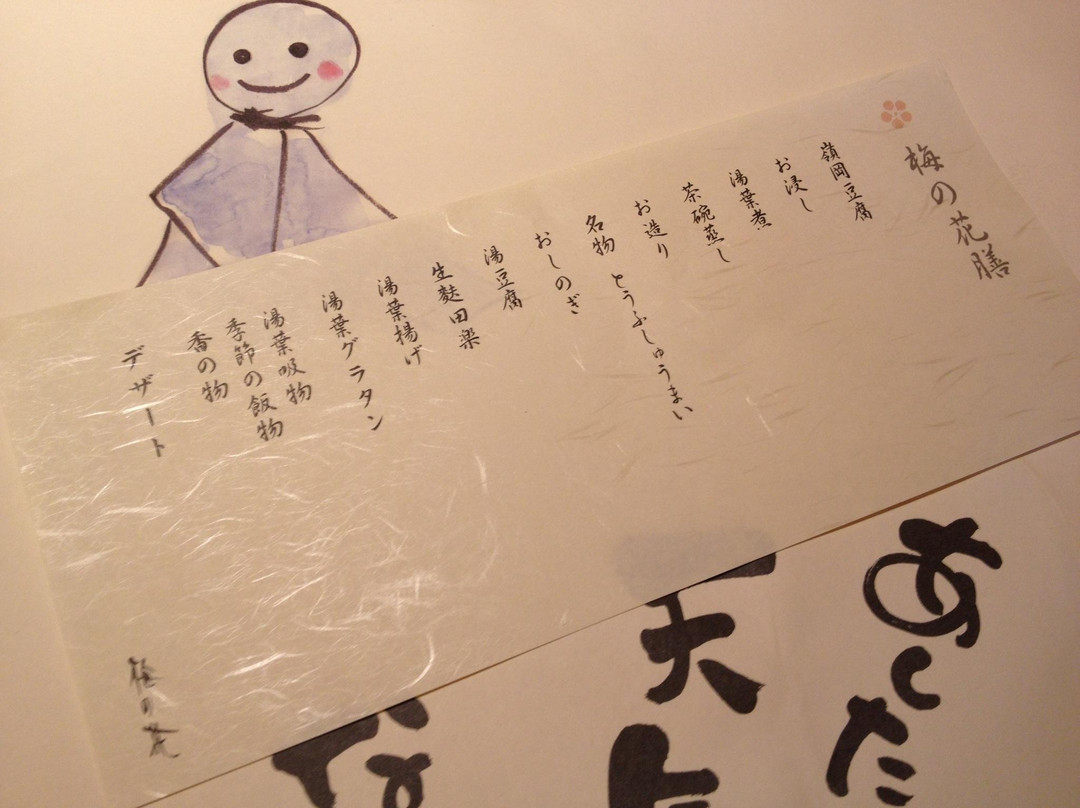 梅の花膳
嶺岡豆腐
お浸し
湯葉煮
茶碗蒸し
お造り
名物 とうふしゅうまい
おしのぎ
湯豆腐
生麩田楽
湯葉揚げ
湯葉グラタン
湯葉吸物
季節の飯物
香の物
デザート
梅の花
あした
天